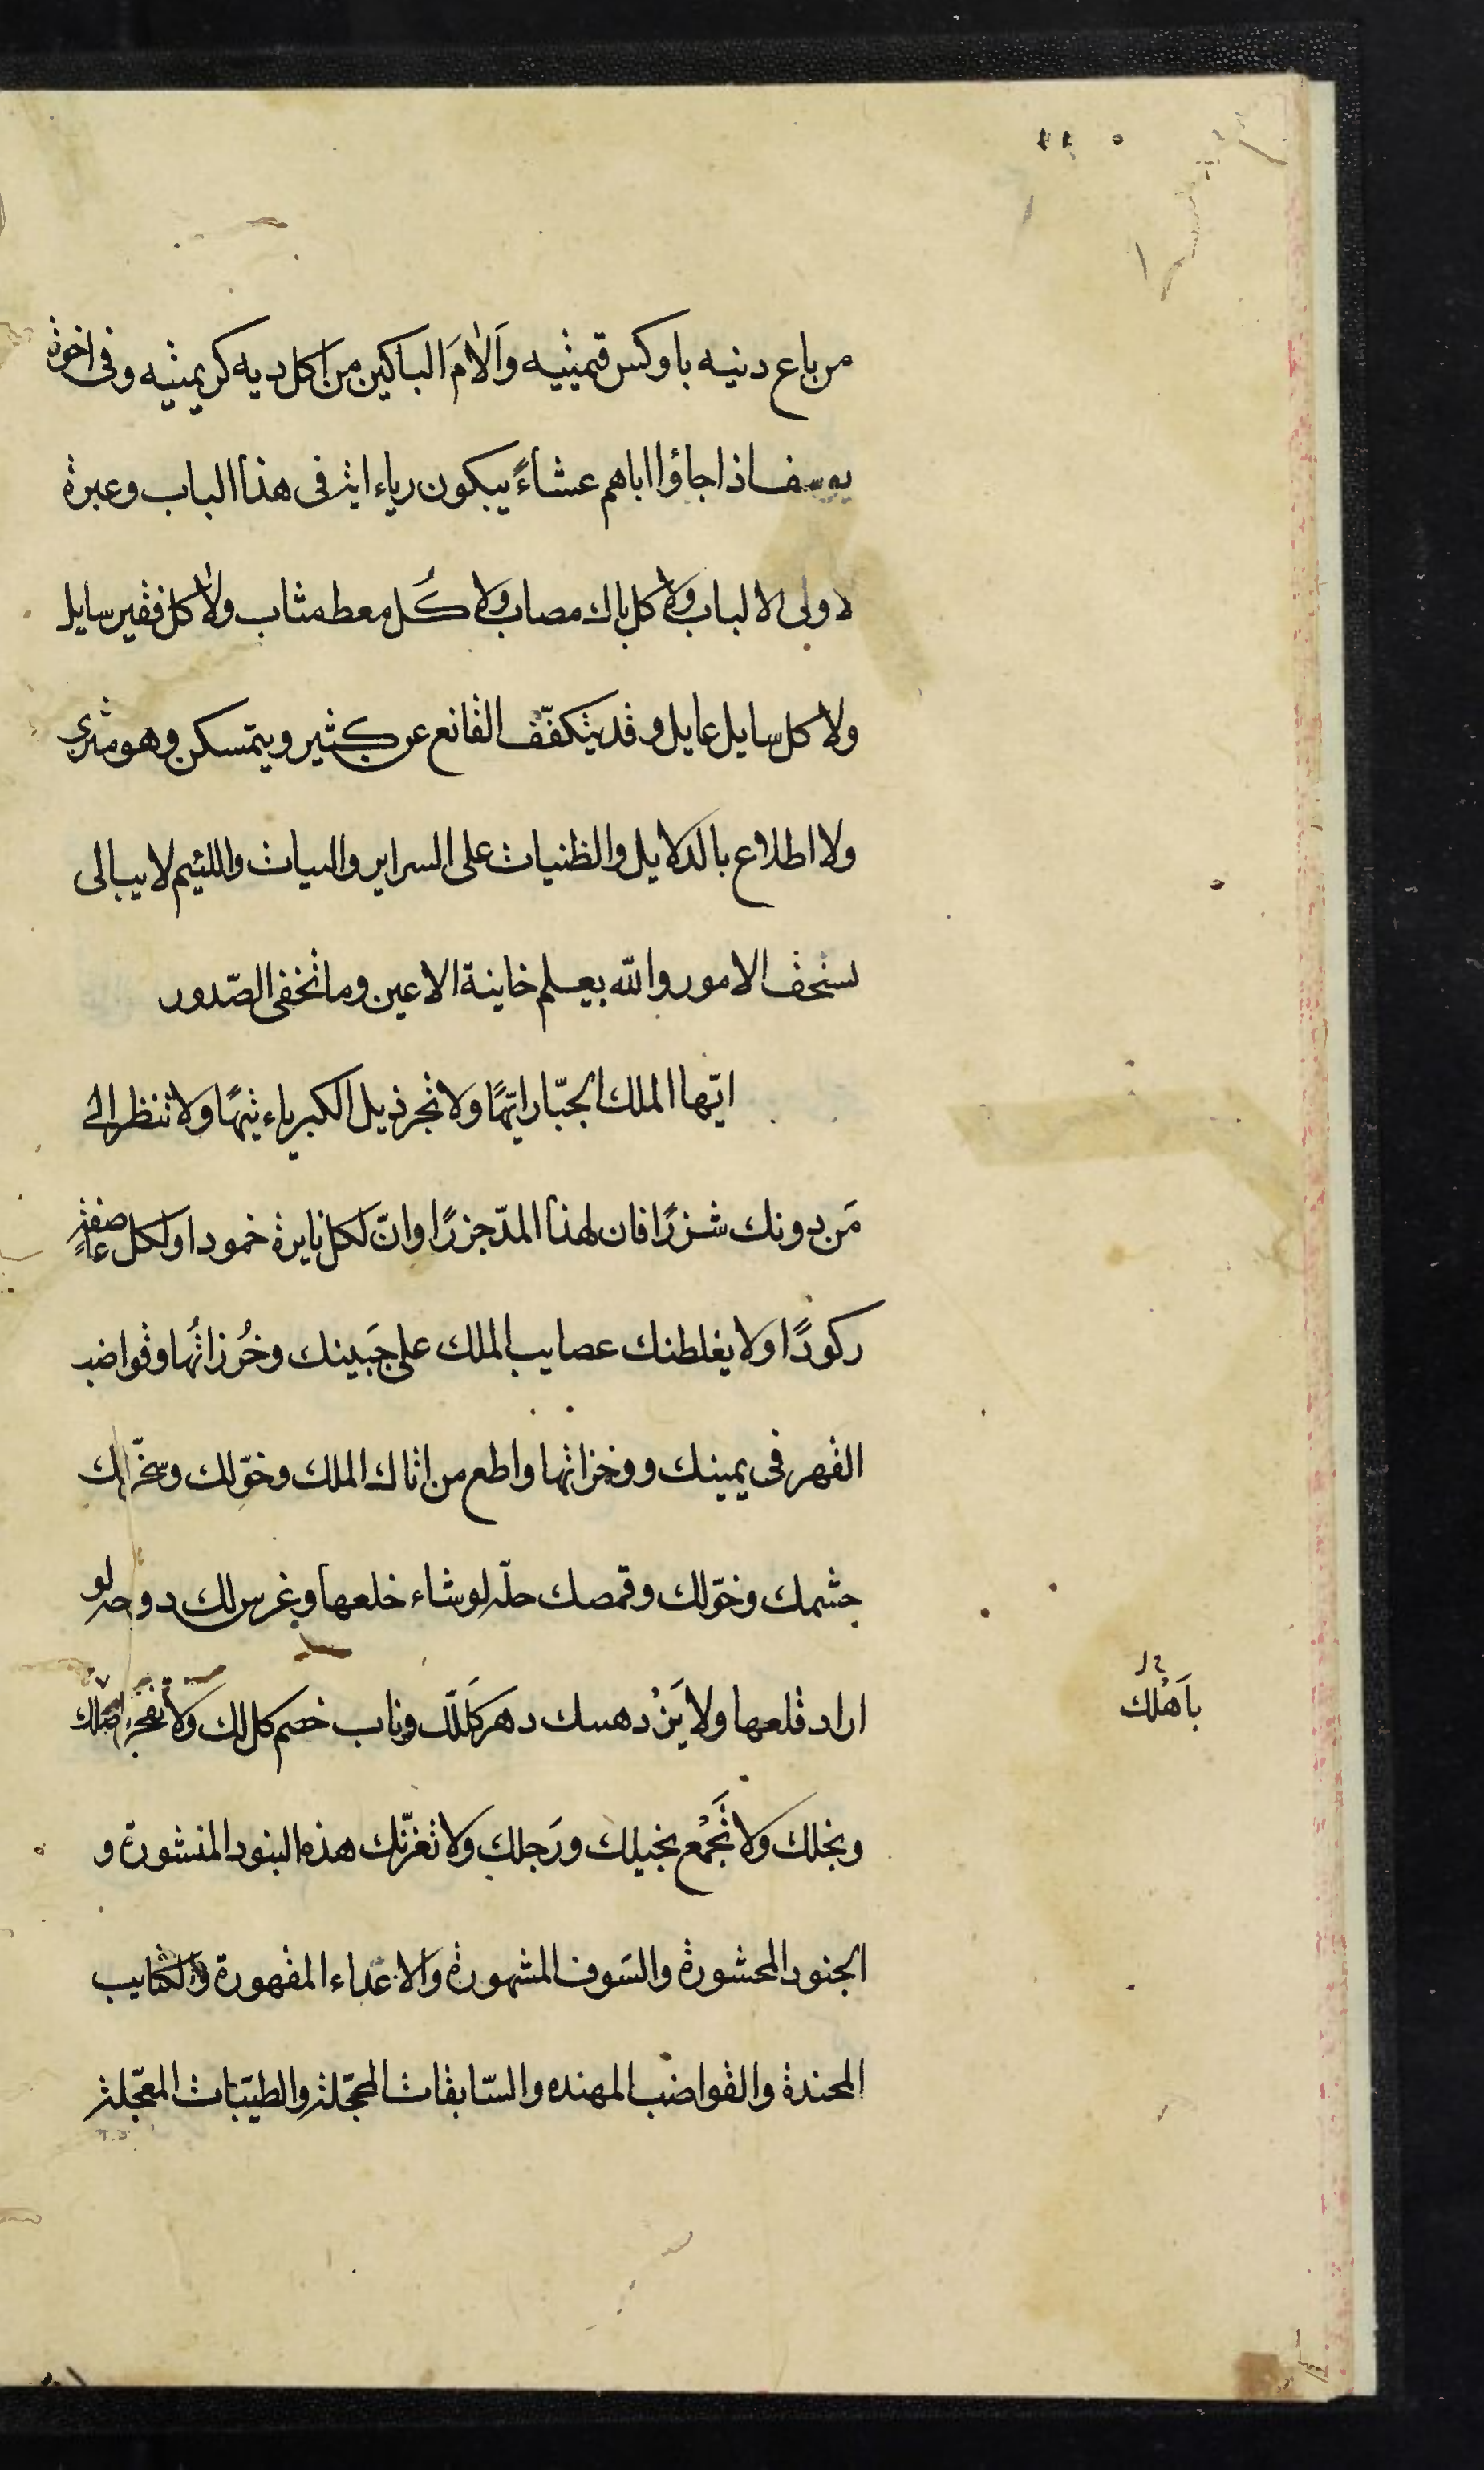 من باع دنيه باوكس قيمتيه وَالامَ الباكين من اكل ديه كريمتيه وفى اخوة
يوسف اذا جاؤا اباهم عشاءً يبكون رياء اية فى هذا الباب وعبرة
لاولى الالباب ولا كل باك مصاب ولا كُل معط مثاب ولا كل فقير سايل
ولا كل سايل عايل وقد يتكفّف القانع عن كثير ويتمسكن وهو مثرى
ولا اطلاع بالدلايل والظنيات على السراير والنيات واللئيم لا يبالى
بسخف الامور والله يعلم خاينة الاعين وما تخفى الصّدور
ايّها الملك الجبّار ايّهًا ولا تجر ذيل الكبرياء تيهًا ولا تنظر الى
مَن دونك شزرًا فان لهذا المدّ جزرًا وانّ لكل نايرة خمودا ولكل عاصفة
ركودًا ولا يغلطنك عصايب الملك على جَبينك وخُرزاتُها وقواضب
القهر فى يمينك ووخزاتها واطع من اتاك الملك وخوّلك وسخّر لك
حشمك وخوّلك وقمصك حلّة لو شاء خلعها وغرس لك دوحة لو
اراد قلعها ولا يَزْدهسك دهر كَلّلك وناب خصم كل لك ولا تفجر
وبخلك ولا تَجْمع بخيلك ورَجلك ولا تغرّنك هذه البنود المنشورة و
الجنود المحشورة والسَوف المشهورة والاعداء المقهورة والكتايب
المجندة والقواضب المهنده والسّابقات المحجّلة والطيّبات المعجّلة
باَهْلك